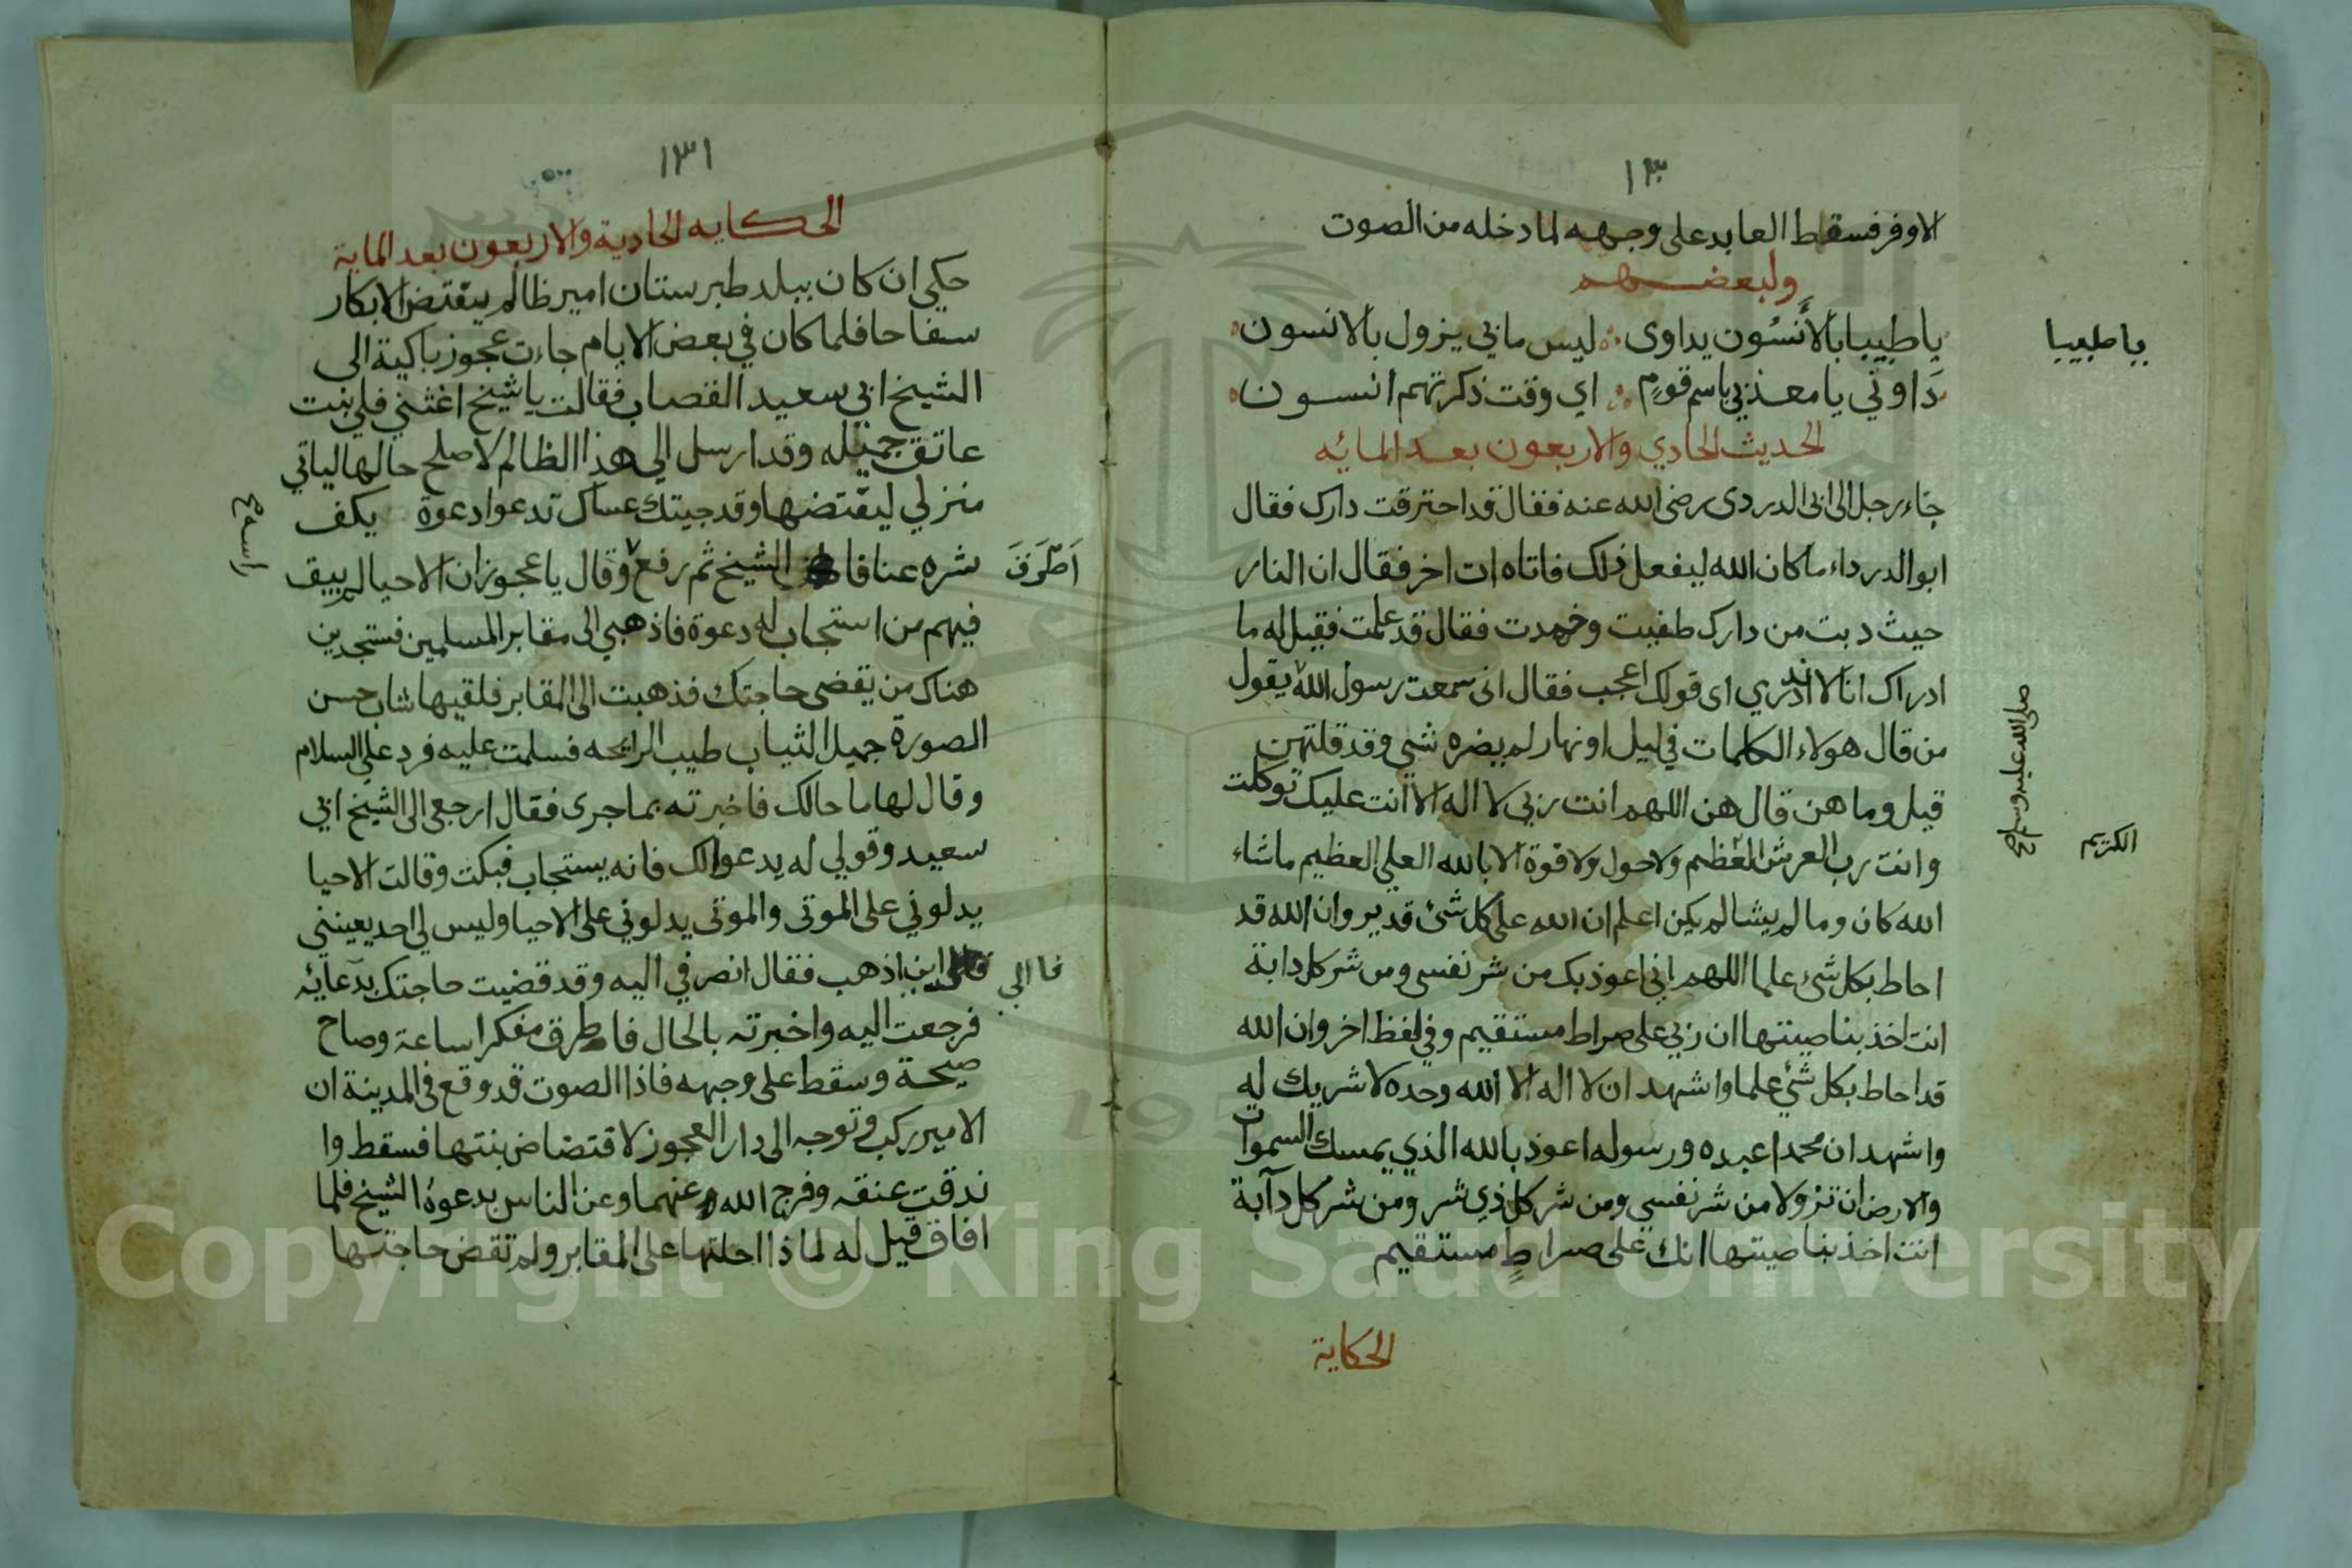 ١٣٠
الاوفر فسقط العابد على وجهه لما دخله من الصوت
ولبعضهم
يا طبيبا بالأَنسُون يداوى ليس ما بي يزول بالانسون
يا طبيبا
دَاوني يا معذبي باسم قومٍ اي وقت ذكرتهم انسون
الحديث الحادي والاربعون بعد المائه
جاء رجل الى ابى الدردى رضى الله عنه فقال قد احترقت دارك فقال
ابو الدرداء ما كان الله ليفعل ذلك فاتاه ات اخر فقال ان النار
حيث دبت من دارك طفيت وخمدت فقال قد علمت فقيل له ما
ادراك انا لا ندري اى قولك اعجب فقال انى سمعت رسول الله يقول
صلى الله عليه وسلم صح
من قال هولاء الكلمات في ليل او نهار لم يضره شي وقد قلتهن
قيل وما هن قال هن اللهم انت ربي لا اله الا انت عليك توكلت
وانت رب العرش العظيم ولا حول ولا قوة الا بالله العلي العظيم ما شاء
الكريم
الله كان وما لم يشا لم يكن اعلم ان الله على كل شئ قدير وان الله قد
احاط بكل شئ علما اللهم اني اعوذ بك من شر نفسى ومن شر كل دابة
انت اخذ بناصيتها ان ربي على صراط مستقيم وفي لفظ اخر وان الله
قد احاط بكل شئ علما واشهد ان لا اله الا الله وحده لا شريك له
واشهد ان محمدا عبده ورسوله اعوذ بالله الذي يمسك السموات
والارض ان تزولا من شر نفسي ومن شر كل ذي شر ومن شر كل دآبة
انت اخذ بناصيتها انك على صراطٍ مستقيم
الحكاية
١٣١
الحكايه الحادية والاربعون بعد الماية
حكي ان كان ببلد طبرستان امير ظالم يقتض الابكار
سفاحا فلما كان في بعض الايام جاءت عجوز باكية الى
الشيخ ابي سعيد القصاب فقالت يا شيخ اغثني فلي بنت
عاتق جميله وقد ارسل الي هذا الظالم لاصلح حالها لياتي
منزلي ليقتضها وقد جيتك عساك تدعوا دعوة يكف
شره عنا فا الشيخ ثم رفع وقال يا عجوز ان الاحيا لم يبق
اَطرَقَ
راسه صح
فيهم من استجاب له دعوة فاذهبي الى مقابر المسلمين فستجدين
هناك من يقضى حاجتك فذهبت الى المقابر فلقيها شاب حسن
الصورة جميل الثياب طيب الرائحه فسلمت عليه فرد علي السلام
وقال لها ما حالك فاخبرته بما جرى فقال ارجعى الى الشيخ ابي
سعيد وقولي له يدعوا لك فانه يستجاب فبكت وقالت الاحيا
يدلوني على الموتى والموتى يدلوني على الاحيا وليس لي احد يعينني
اين اذهب فقال انصرفي اليه وقد قضيت حاجتك بدعائه
فالي
فرجعت اليه واخبرته بالحال فاطرق مفكرا ساعة وصاح
صيحة وسقط على وجهه فاذا الصوت قد وقع في المدينة ان
الامير ركب وتوجه الى دار العجوز لاقتضاض بنتها فسقط وا
ندقت عنقه وفرج الله عنهما وعن الناس بدعوة الشيخ فلما
افاق قيل له لماذا احلتها على المقابر ولم تقض حاجتها
Copyright © King Saud University
195